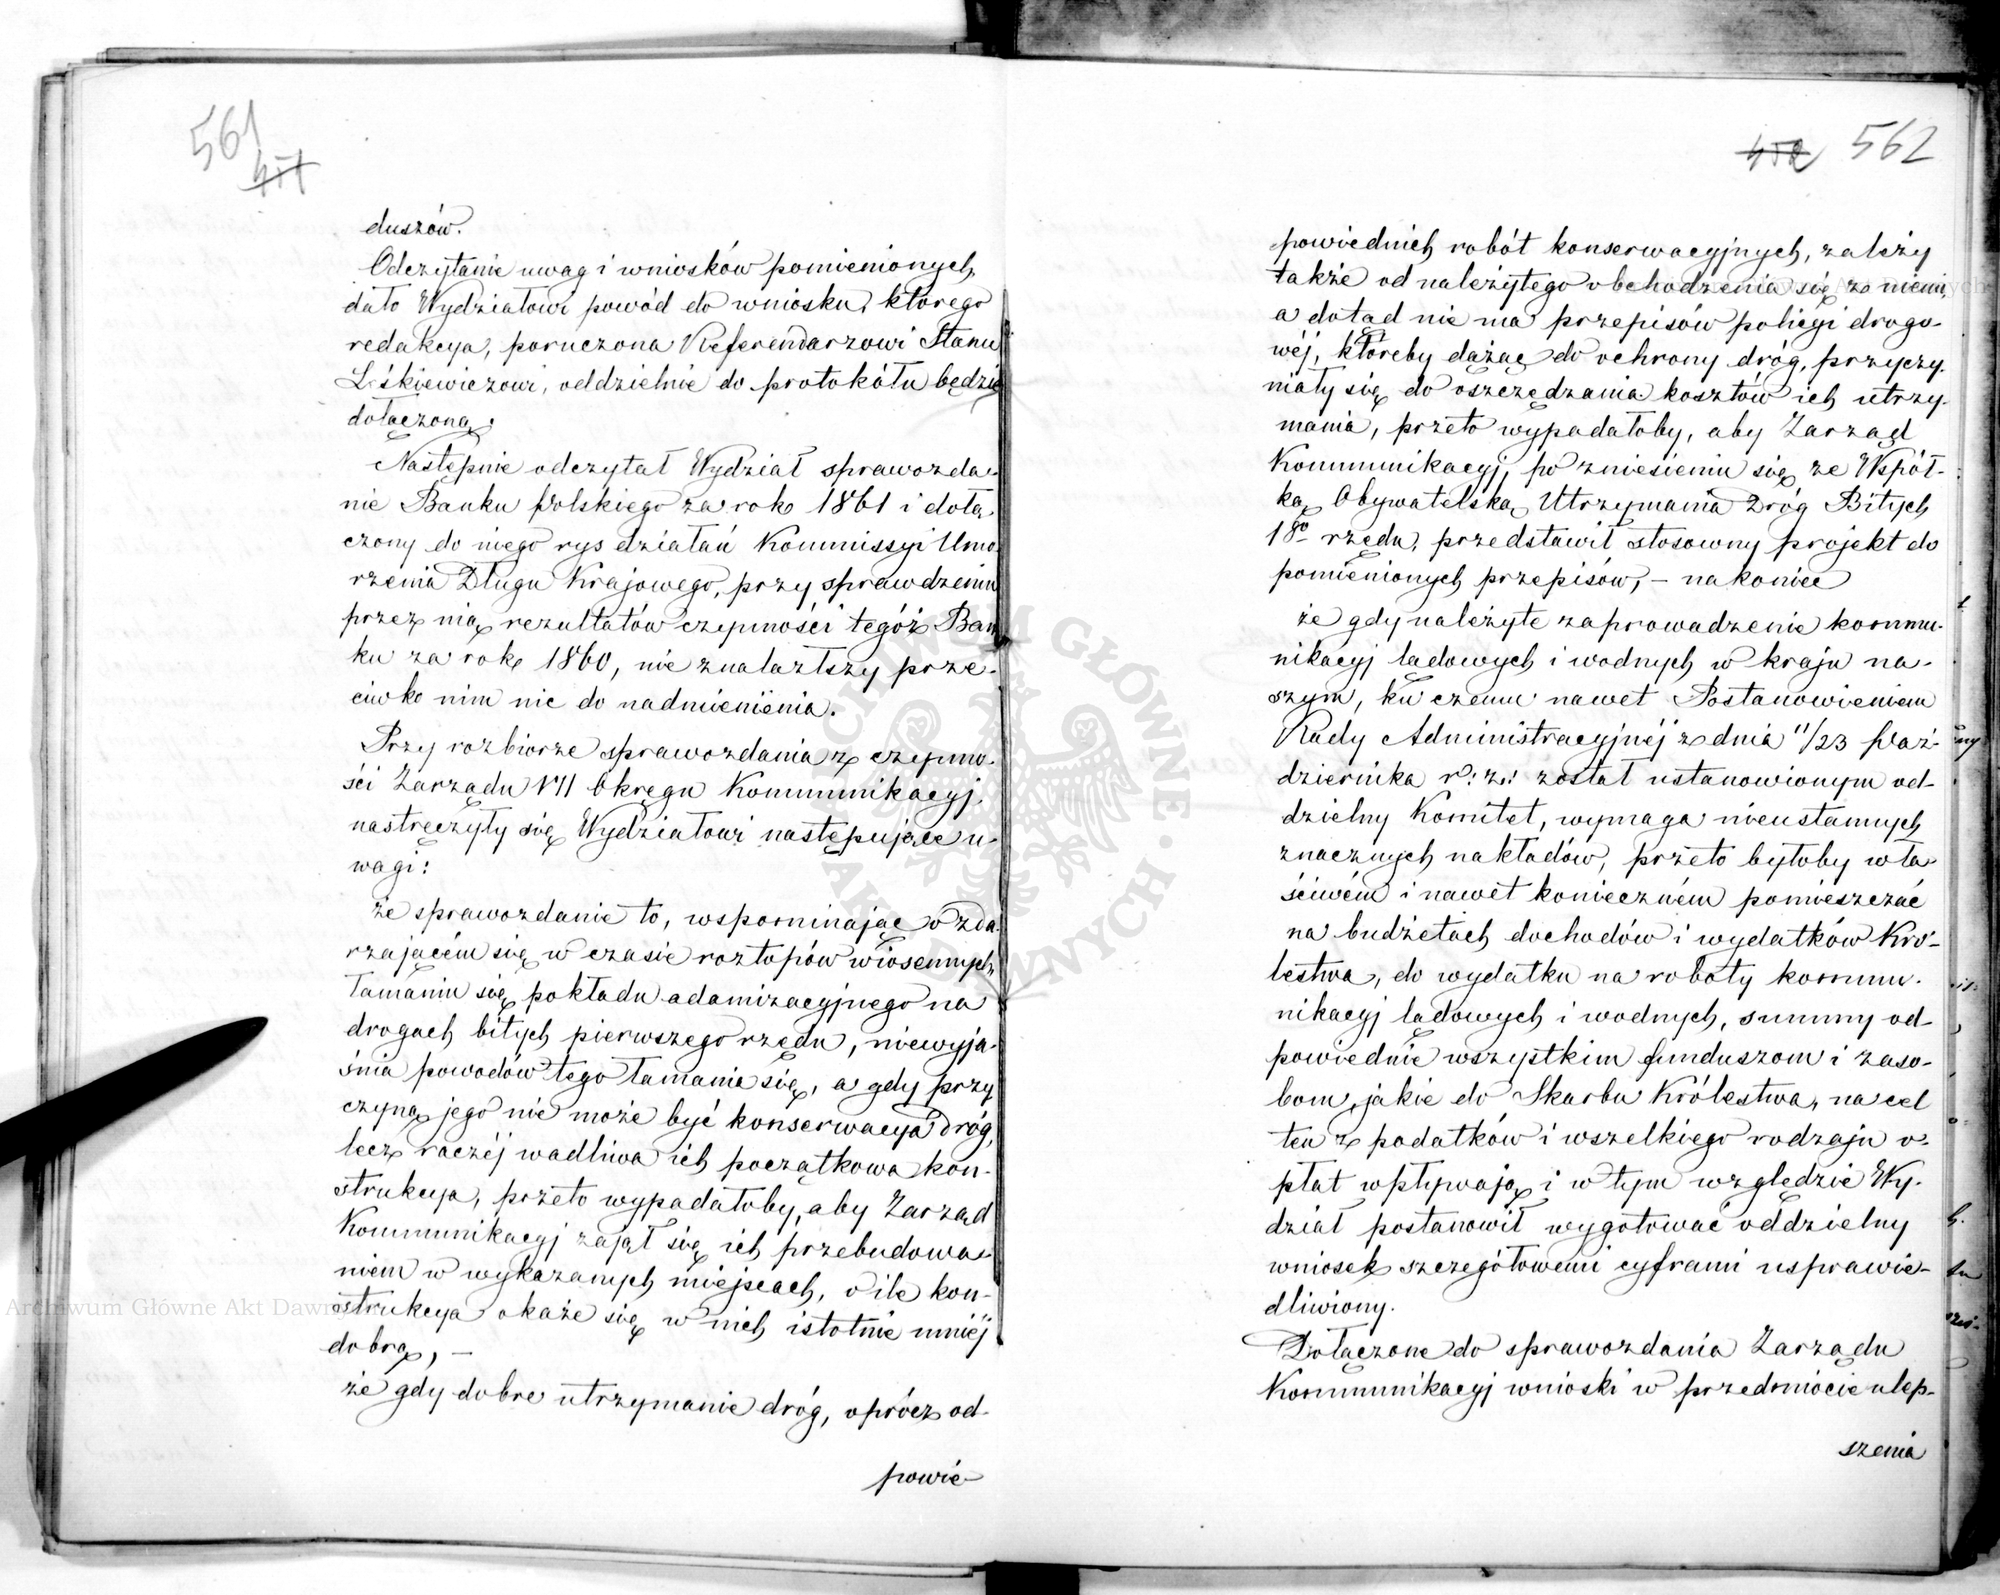 561
451
duszów.
Odczytanie uwag i wniosków pomienionych,
dało Wydziałowi powód do wniosku, którego
redakcya, poruczona Referendarzowi Stanu
Leśkiewiczowi, oddzielnie do protokółu będzie
dołączoną.
Następnie odczytał Wydział sprawozda-
nie Banku Polskiego za rok 1861 i dołą-
czony do niego rys działań Kommissyi Umo-
rzenia Długu Krajowego, przy sprawdzeniu
przez nią rezultatów czynności tegóż Ban-
ku za rok 1860, nie znalazłszy prze-
ciwko nim nic do nadmienienia.
Przy rozbiorze sprawozdania z czynno-
ści Zarządu XIII Okręgu Kommunikacyj,
nastręczyły się Wydziałowi następujące u-
wagi:
że sprawozdanie to, wspominając o zda-
rzającém się w czasie roztopów wiosennych,
łamaniu się pokładu adamizacyjnego na
drogach bitych pierwszego rzędu, niewyja-
śnia powodów tego łamania się, a gdy przy
czyną jego nie może być konserwacya dróg,
lecz raczéj wadliwa ich początkowa kon-
strukcya, przeto wypadałoby, aby Zarząd
Kommunikacyj zajął się ich przebudowa-
niem w wykazanych miejscach, o ile kon-
strukcya okaże się w nich istotnie mniéj
dobrą, —
że gdy dobre utrzymanie dróg, oprócz od-
powie-
452 562
powiednich robót konserwacyjnych, zależy
także od należytego obchodzenia się z niemi,
a dotąd nie ma przepisów policyi drogo-
wéj, któreby dążąc do ochrony dróg, przyczy-
niały się do oszczędzania kosztów ich utrzy-
mania, przeto wypadałoby, aby Zarząd
Kommunikacyj, po zniesieniu się ze Spół-
ką Obywatelską Utrzymania Dróg Bitych
1go rzędu, przedstawił stosowny projekt do
pomienionych przepisów, — nakoniec
że gdy należyte zaprowadzenie kommu-
nikacyj lądowych i wodnych w kraju na-
szym, ku czemu nawet Postanowieniem
Rady Administracyjnéj z dnia 11/23 Paź-
dziernika r: z: został ustanowionym od-
dzielny Komitet, wymaga nieustannych
znacznych nakładów, przeto byłoby wła-
ściwém i nawet konieczném pomieszczać
na budżetach dochodów i wydatków Kró-
lestwa, do wydatku na roboty kommu-
nikacyj lądowych i wodnych, summy od-
powiednie wszystkim funduszom i zaso-
bom, jakie do Skarbu Królestwa, na cel
ten z podatków i wszelkiego rodzaju o-
płat wpływają i w tym względzie Wy-
dział postanowił wygotować oddzielny
wniosek szczegółowemi cyframi usprawie-
dliwiony.
Dołączone do sprawozdania Zarządu
Kommunikacyj wnioski w przedmiocie ulep-
szenia
ARCHIWUM GŁÓWNE AKT DAWNYCH
Archiwum Główne Akt Dawnych